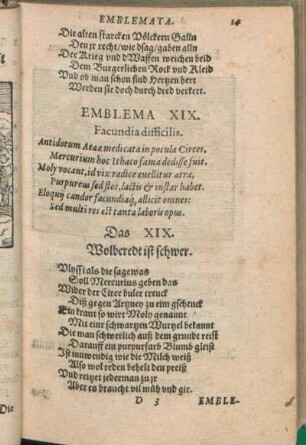 EMBLEMATA.
Die alten starcken Völckern Galln
Den jr recht/ wie dsag/ gaben alln
Der Krieg vnd d Waffen weichen beid
Dem Burgerlichen Rock vnd Kleid
Vnd ob man schon find Hertzen hert
Werden sie doch durch dred verkert.
EMBLEMA XIX.
Facundia difficilis.
Antidotum Aeaa medicata in pocula Circes,
Mercurium hoc Ithaco fama dedisse fuit.
Moly vocant, id vix radice euellitur atra,
Purpureus sed flos, lactis & instar habet.
Eloquij candor facundiaq́; allicit omnes:
Sed multi res est tanta laboris opus.
Das XIX.
Wolberedt ist schwer.
Vlyssi als die sage was
Soll Mercurius geben das
Wider der Circe buler tranck
Diß gegen Artzney zu eim gschenck
Ein kraut so wirt Moly genannt
Mit eine schwartzen Wurtzel bekannt
Die man schwerlich auß dem grund reist
Darauff ein purpurfarb Blumb gleist
Ist innwendig wie die Milch weiß
Also wol reden behelt den preiß
Vnd reitzet jederman zu jr
Aber es braucht vil müh vnd gir.
D 3 EMBLE-
Die